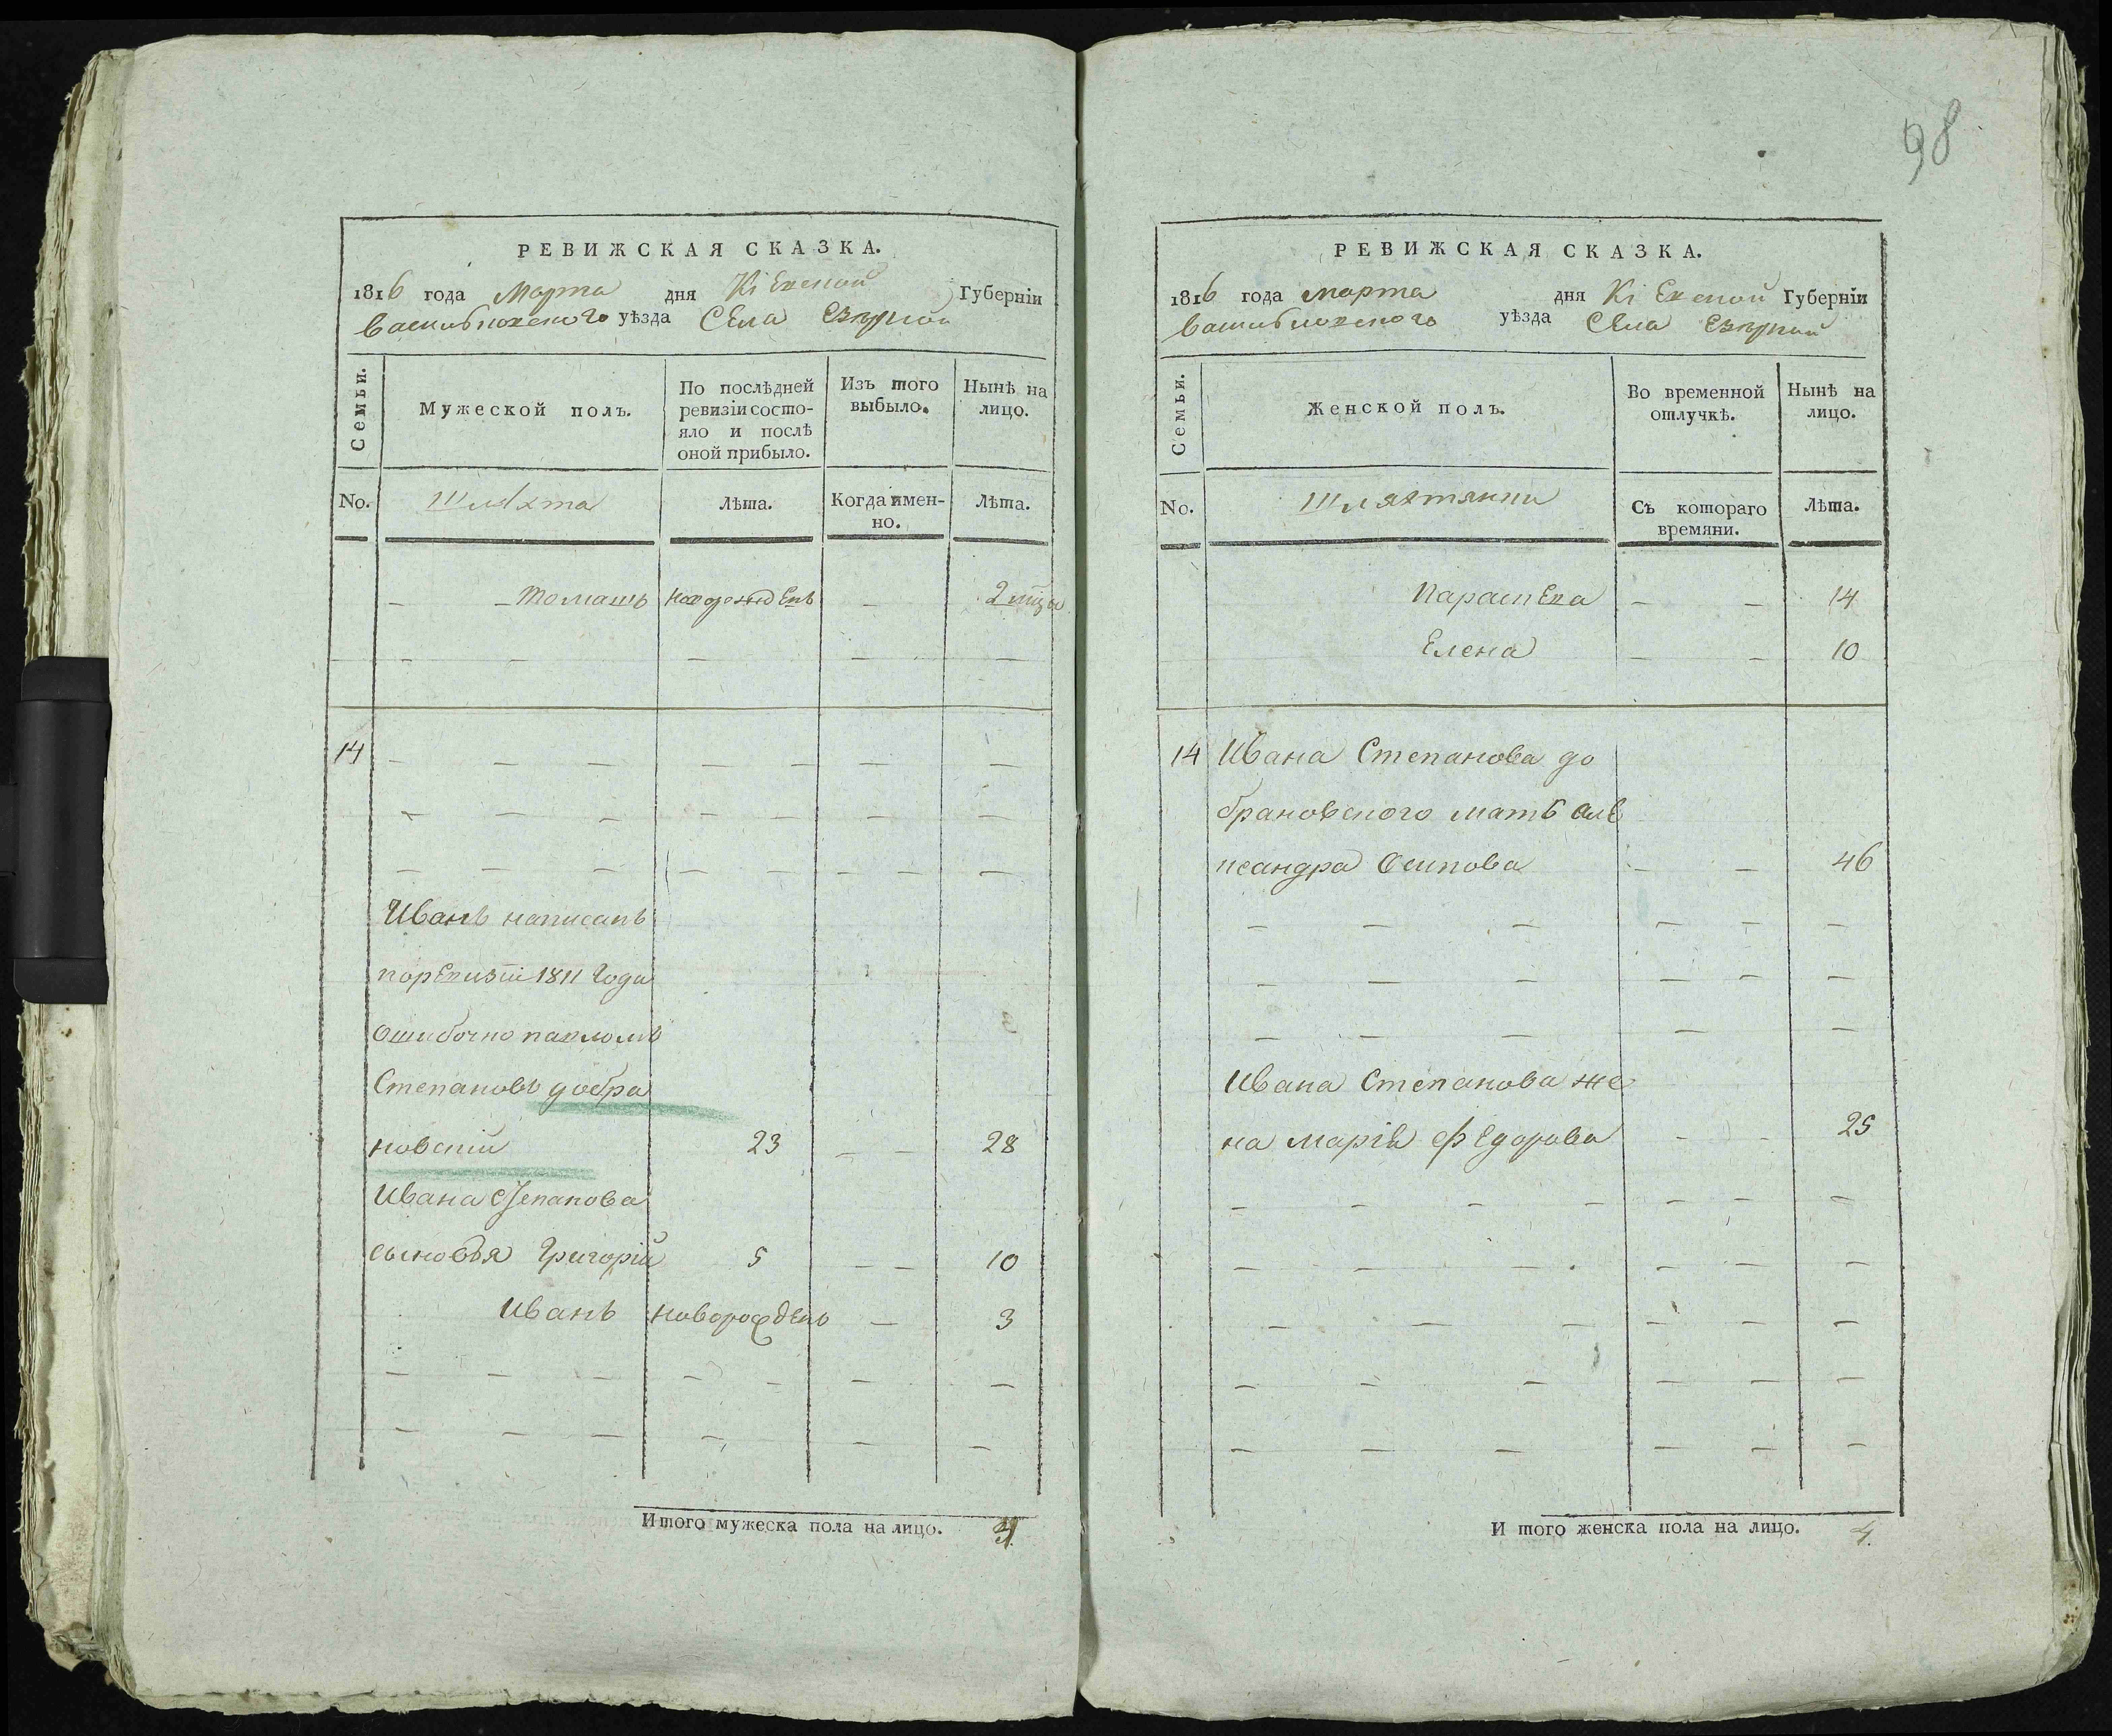 98
РЕВИЖСКАЯ СКАЗКА.
1816 года Марта дня Кіевской Губерніи
Васильковского уѣзда Села Езерной
Семьи.
Мужеской полъ.
По послѣдней ревизіи состо-
яло и послѣ
оной прибыло.
Изъ того
выбыло.
Нынѣ на
лицо.
No.
Шляхта
Лѣта.
Когда имен-
но.
Лѣта.
Томашъ новорожденъ 2
14
Иванъ написанъ
поревизіи 1811 Года
ошибочно павломъ
Степановъ добра
новскій 23 28
Ивана Степанова
сыновья Григорій 5 10
Иванъ новорожденъ 3
Итого мужеска пола на лицо. 4.
РЕВИЖСКАЯ СКАЗКА.
1816 года марта дня Кіевской Губерніи
Васильковского уѣзда Села Езерной
Семьи.
Женской полъ.
Во временной
отлучкѣ.
Нынѣ на
лицо.
No.
Шляхтянки
Съ котораго
времяни.
Лѣта.
Парасцева 14
Елена 10
14 Ивана Степанова до
брановского мать але
ксандра Осипова 46
Ивана Степанова же
на марія Федорова 25
И того женска пола на лицо. 4.